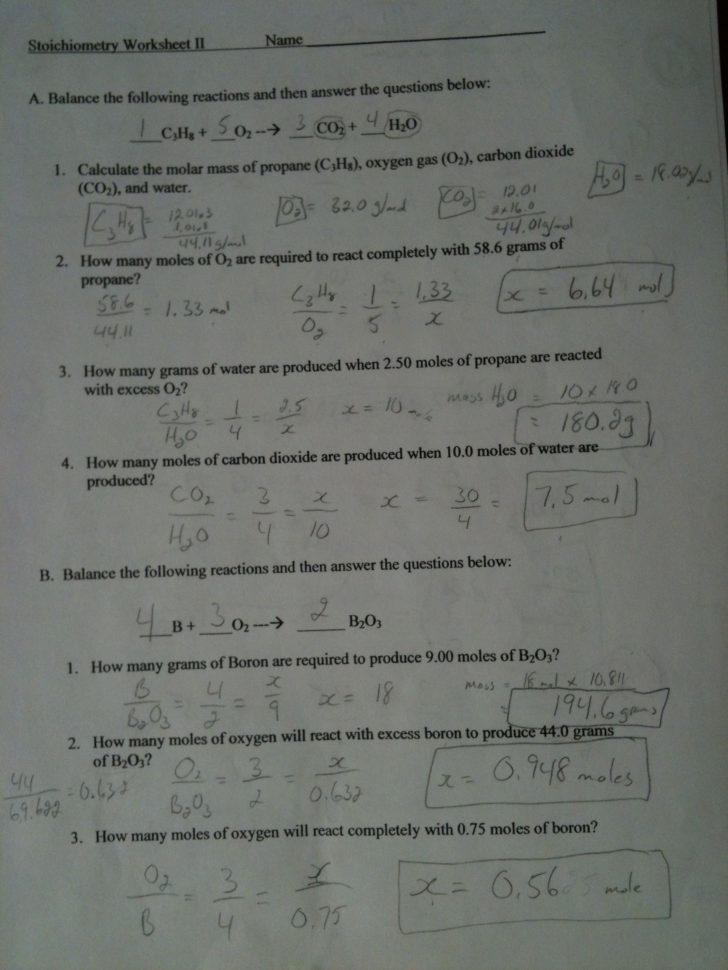 Stoichiometry Worksheet II Name
A. Balance the following reactions and then answer the questions below:
1 C3H8 + 5 O2 --→ 3 CO2 + 4 H2O
1. Calculate the molar mass of propane (C3H8), oxygen gas (O2), carbon dioxide
(CO2), and water.
C3H8 = 12.01×3
1.01×8
44.11 g/mol
O2 = 32.0 g/mol
CO2 = 12.01
2×16.0
44.01 g/mol
H2O =
2. How many moles of O2 are required to react completely with 58.6 grams of
propane?
58.6 / 44.11 = 1.33 mol
C3H8 / O2 = 1 / 5 = 1.33 / x
x = 6.64 mol
3. How many grams of water are produced when 2.50 moles of propane are reacted
with excess O2?
C3H8 / H2O = 1 / 4 = 2.5 / x
x = 10
mass H2O = 10 ×
= 180.2g
4. How many moles of carbon dioxide are produced when 10.0 moles of water are
produced?
CO2 / H2O = 3 / 4 = x / 10
x = 30 / 4 = 7.5 mol
B. Balance the following reactions and then answer the questions below:
4 B + 3 O2 ---→ 2 B2O3
1. How many grams of Boron are required to produce 9.00 moles of B2O3?
B / B2O3 = 4 / 2 = x / 9
x = 18
mass = 18 mol × 10.811
= 194.6 grams
2. How many moles of oxygen will react with excess boron to produce 44.0 grams
of B2O3?
44 / 69.622 = 0.632
O2 / B2O3 = 3 / 2 = x / 0.632
x = 0.948 moles
3. How many moles of oxygen will react completely with 0.75 moles of boron?
O2 / B = 3 / 4 = x / 0.75
x = 0.56 mole